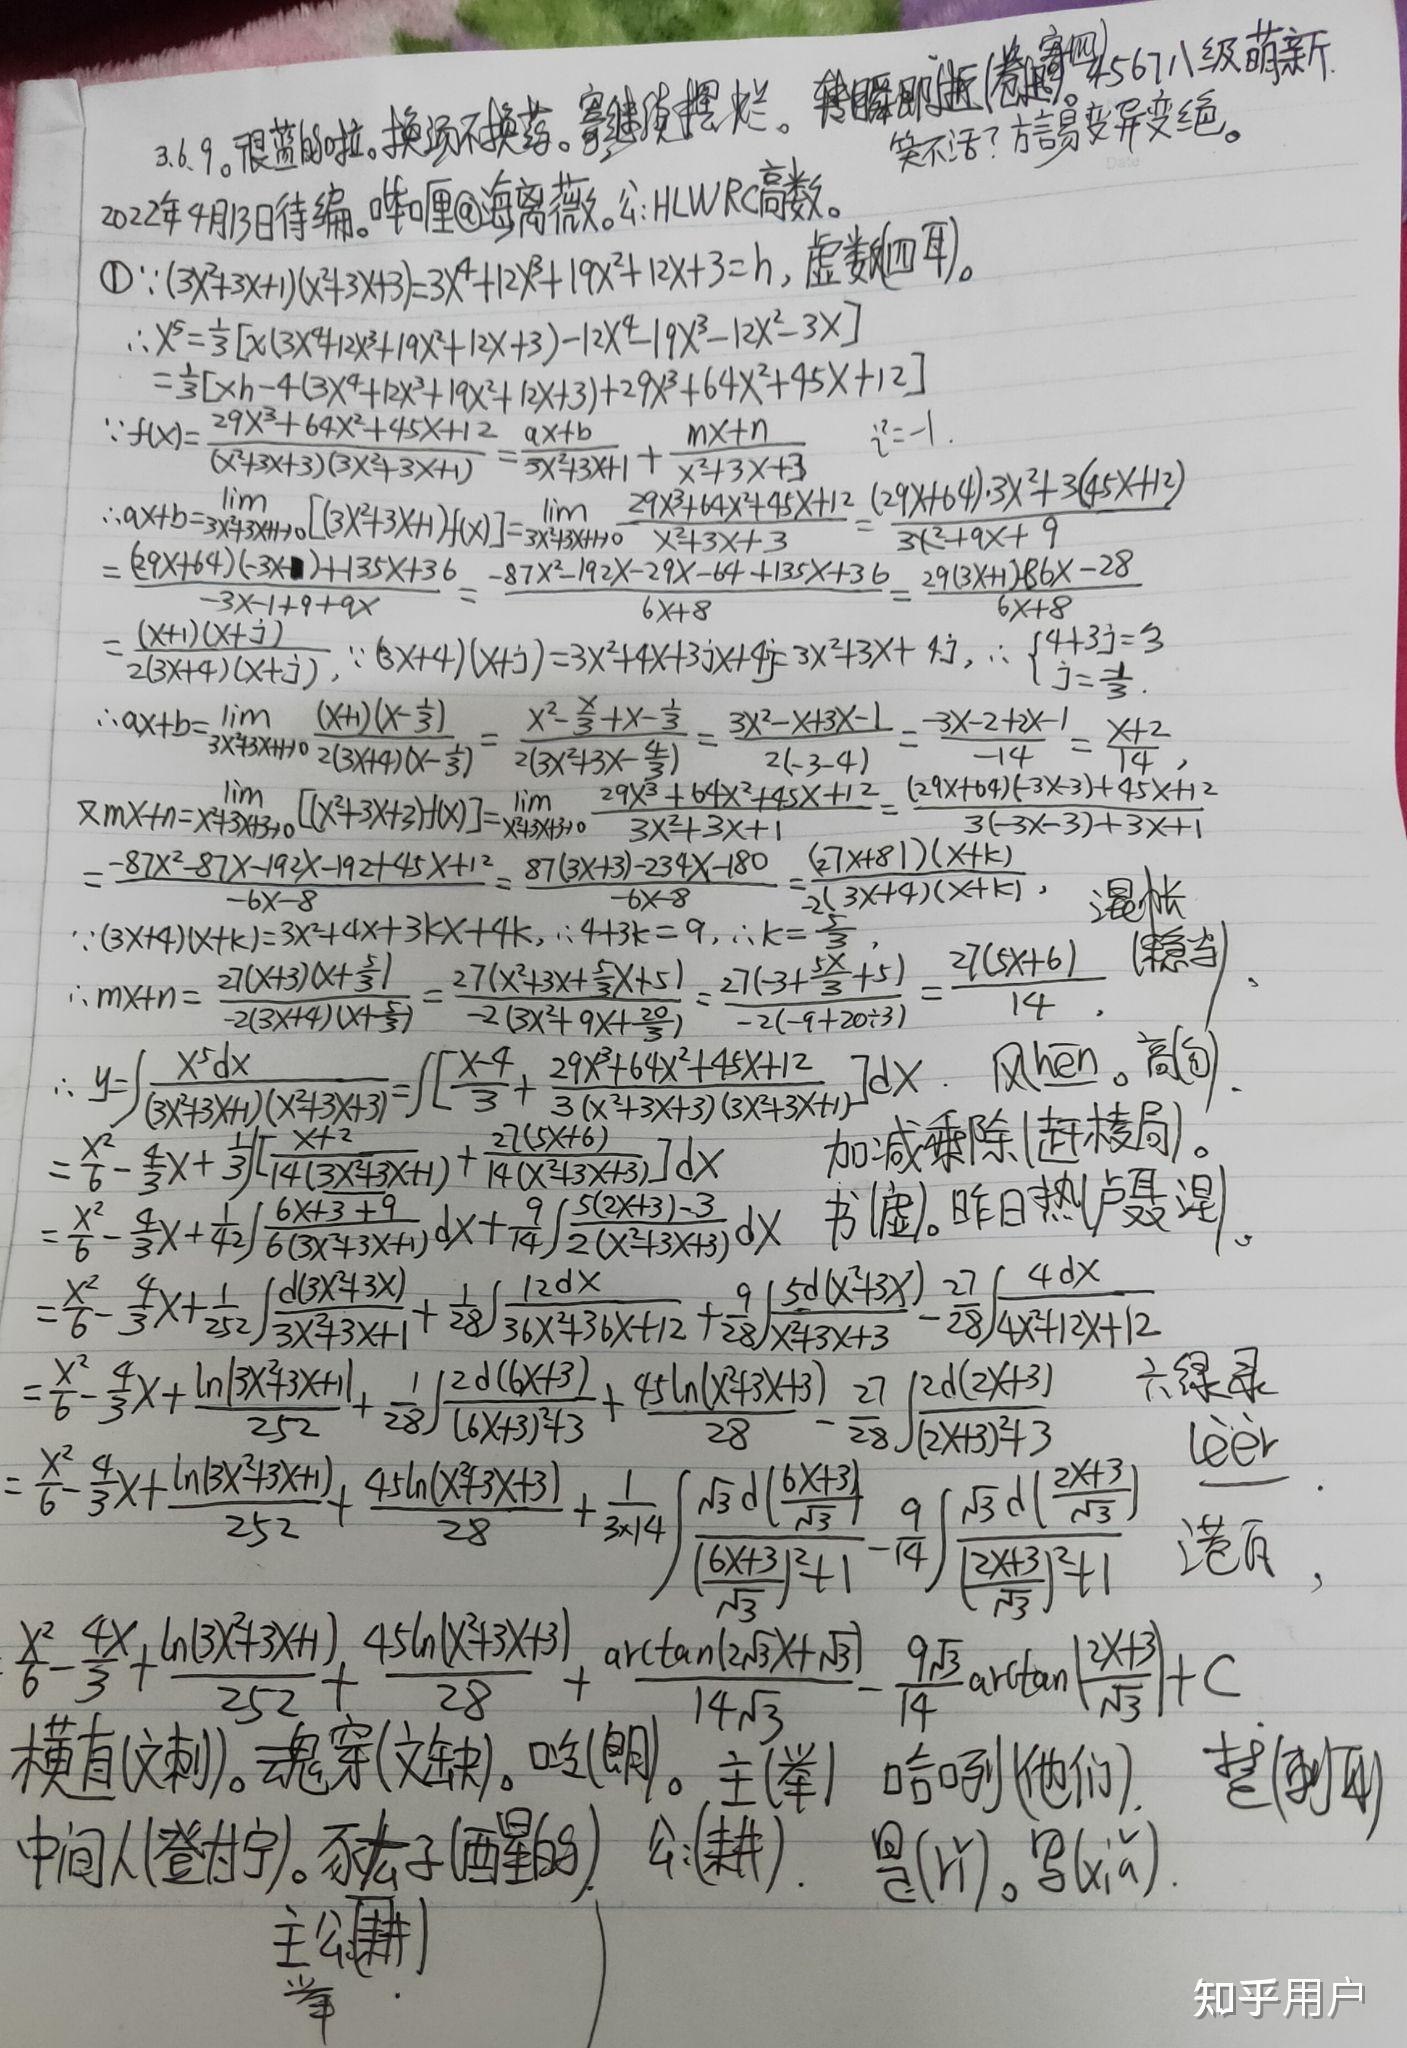 3.6.9。很蓝的啦。换汤不换药。寄继续摆烂。转瞬即逝 4567八级萌新.
笑不活？方言易变异变绝。
2022年4月13日待编。哔哩@海离薇。公:HLWRC高数。
①∵(3x²+3x+1)(x²+3x+3)=3x⁴+12x³+19x²+12x+3=h, 虚数(四耳)。
∴x⁵=1/3[x(3x⁴+12x³+19x²+12x+3)-12x⁴-19x³-12x²-3x]
=1/3[xh-4(3x⁴+12x³+19x²+12x+3)+29x³+64x²+45x+12]
∵f(x)=(29x³+64x²+45x+12)/((x²+3x+3)(3x²+3x+1))=(ax+b)/(3x²+3x+1)+(mx+n)/(x²+3x+3) i²=-1.
∴ax+b=lim 3x²+3x+1→0[(3x²+3x+1)f(x)]=lim 3x²+3x+1→0 (29x³+64x²+45x+12)/(x²+3x+3)=((29x+64)·3x²+3(45x+12))/(3x²+9x+9)
=((29x+64)(-3x-1)+135x+36)/(-3x-1+9+9x)=(-87x²-192x-29x-64+135x+36)/(6x+8)=(29(3x+1)-86x-28)/(6x+8)
=((x+1)(x+j))/(2(3x+4)(x+j)), ∵(3x+4)(x+j)=3x²+4x+3jx+4j=3x²+3x+4j, ∴{4+3j=3 j=-1/3.
∴ax+b=lim 3x²+3x+1→0 ((x+1)(x-1/3))/(2(3x+4)(x-1/3))=(x²-x/3+x-1/3)/(2(3x²+3x-4/3))=(3x²-x+3x-1)/(2(-3-4))=(-3x-2+2x-1)/(-14)=(x+2)/14,
又mx+n=lim x²+3x+3→0[(x²+3x+3)f(x)]=lim x²+3x+3→0 (29x³+64x²+45x+12)/(3x²+3x+1)=((29x+64)(-3x-3)+45x+12)/(3(-3x-3)+3x+1)
=(-87x²-87x-192x-192+45x+12)/(-6x-8)=(87(3x+3)-234x-180)/(-6x-8)=((27x+81)(x+k))/(-2(3x+4)(x+k)),
∵(3x+4)(x+k)=3x²+4x+3kx+4k, ∴4+3k=9, ∴k=5/3, (稳当)、
∴mx+n=(27(x+3)(x+5/3))/(-2(3x+4)(x+5/3))=(27(x²+3x+5/3x+5))/(-2(3x²+9x+20/3))=(27(-3+5x/3+5))/(-2(-9+20÷3))=(27(5x+6))/14,
∴y=∫x⁵dx/((3x²+3x+1)(x²+3x+3))=∫[(x-4)/3+(29x³+64x²+45x+12)/(3(x²+3x+3)(3x²+3x+1))]dx. 风hēn。
=x²/6-4/3x+1/3∫[(x+2)/(14(3x²+3x+1))+(27(5x+6))/(14(x²+3x+3))]dx 加减乘除(赶棱局)。
=x²/6-4/3x+1/42∫(6x+3+9)/(6(3x²+3x+1))dx+9/14∫(5(2x+3)-3)/(2(x²+3x+3))dx 书(虚)。昨日热(卢聂涅)、
=x²/6-4/3x+1/252∫d(3x²+3x)/(3x²+3x+1)+1/28∫12dx/(36x²+36x+12)+9/28∫5d(x²+3x)/(x²+3x+3)-27/28∫4dx/(4x²+12x+12)
=x²/6-4/3x+ln|3x²+3x+1|/252+1/28∫2d(6x+3)/((6x+3)²+3)+45ln(x²+3x+3)/28-27/28∫2d(2x+3)/((2x+3)²+3) 六绿录
=x²/6-4/3x+ln(3x²+3x+1)/252+45ln(x²+3x+3)/28+1/(3×14)∫√3d((6x+3)/√3)/(((6x+3)/√3)²+1)-9/14∫√3d((2x+3)/√3)/(((2x+3)/√3)²+1) lèèr.
=x²/6-4x/3+ln(3x²+3x+1)/252+45ln(x²+3x+3)/28+arctan(2√3x+√3)/(14√3)-9√3/14arctan((2x+3)/√3)+C
横直(文刺)。魂穿(文缺)。吃(朗)。主(举) 哈咧(他们).
中间人(登甘宁)。豕太子(酉星的). 公:(耕). 是(rǐ)。写(xiǎ).
主公:(耕).
举
知乎用户